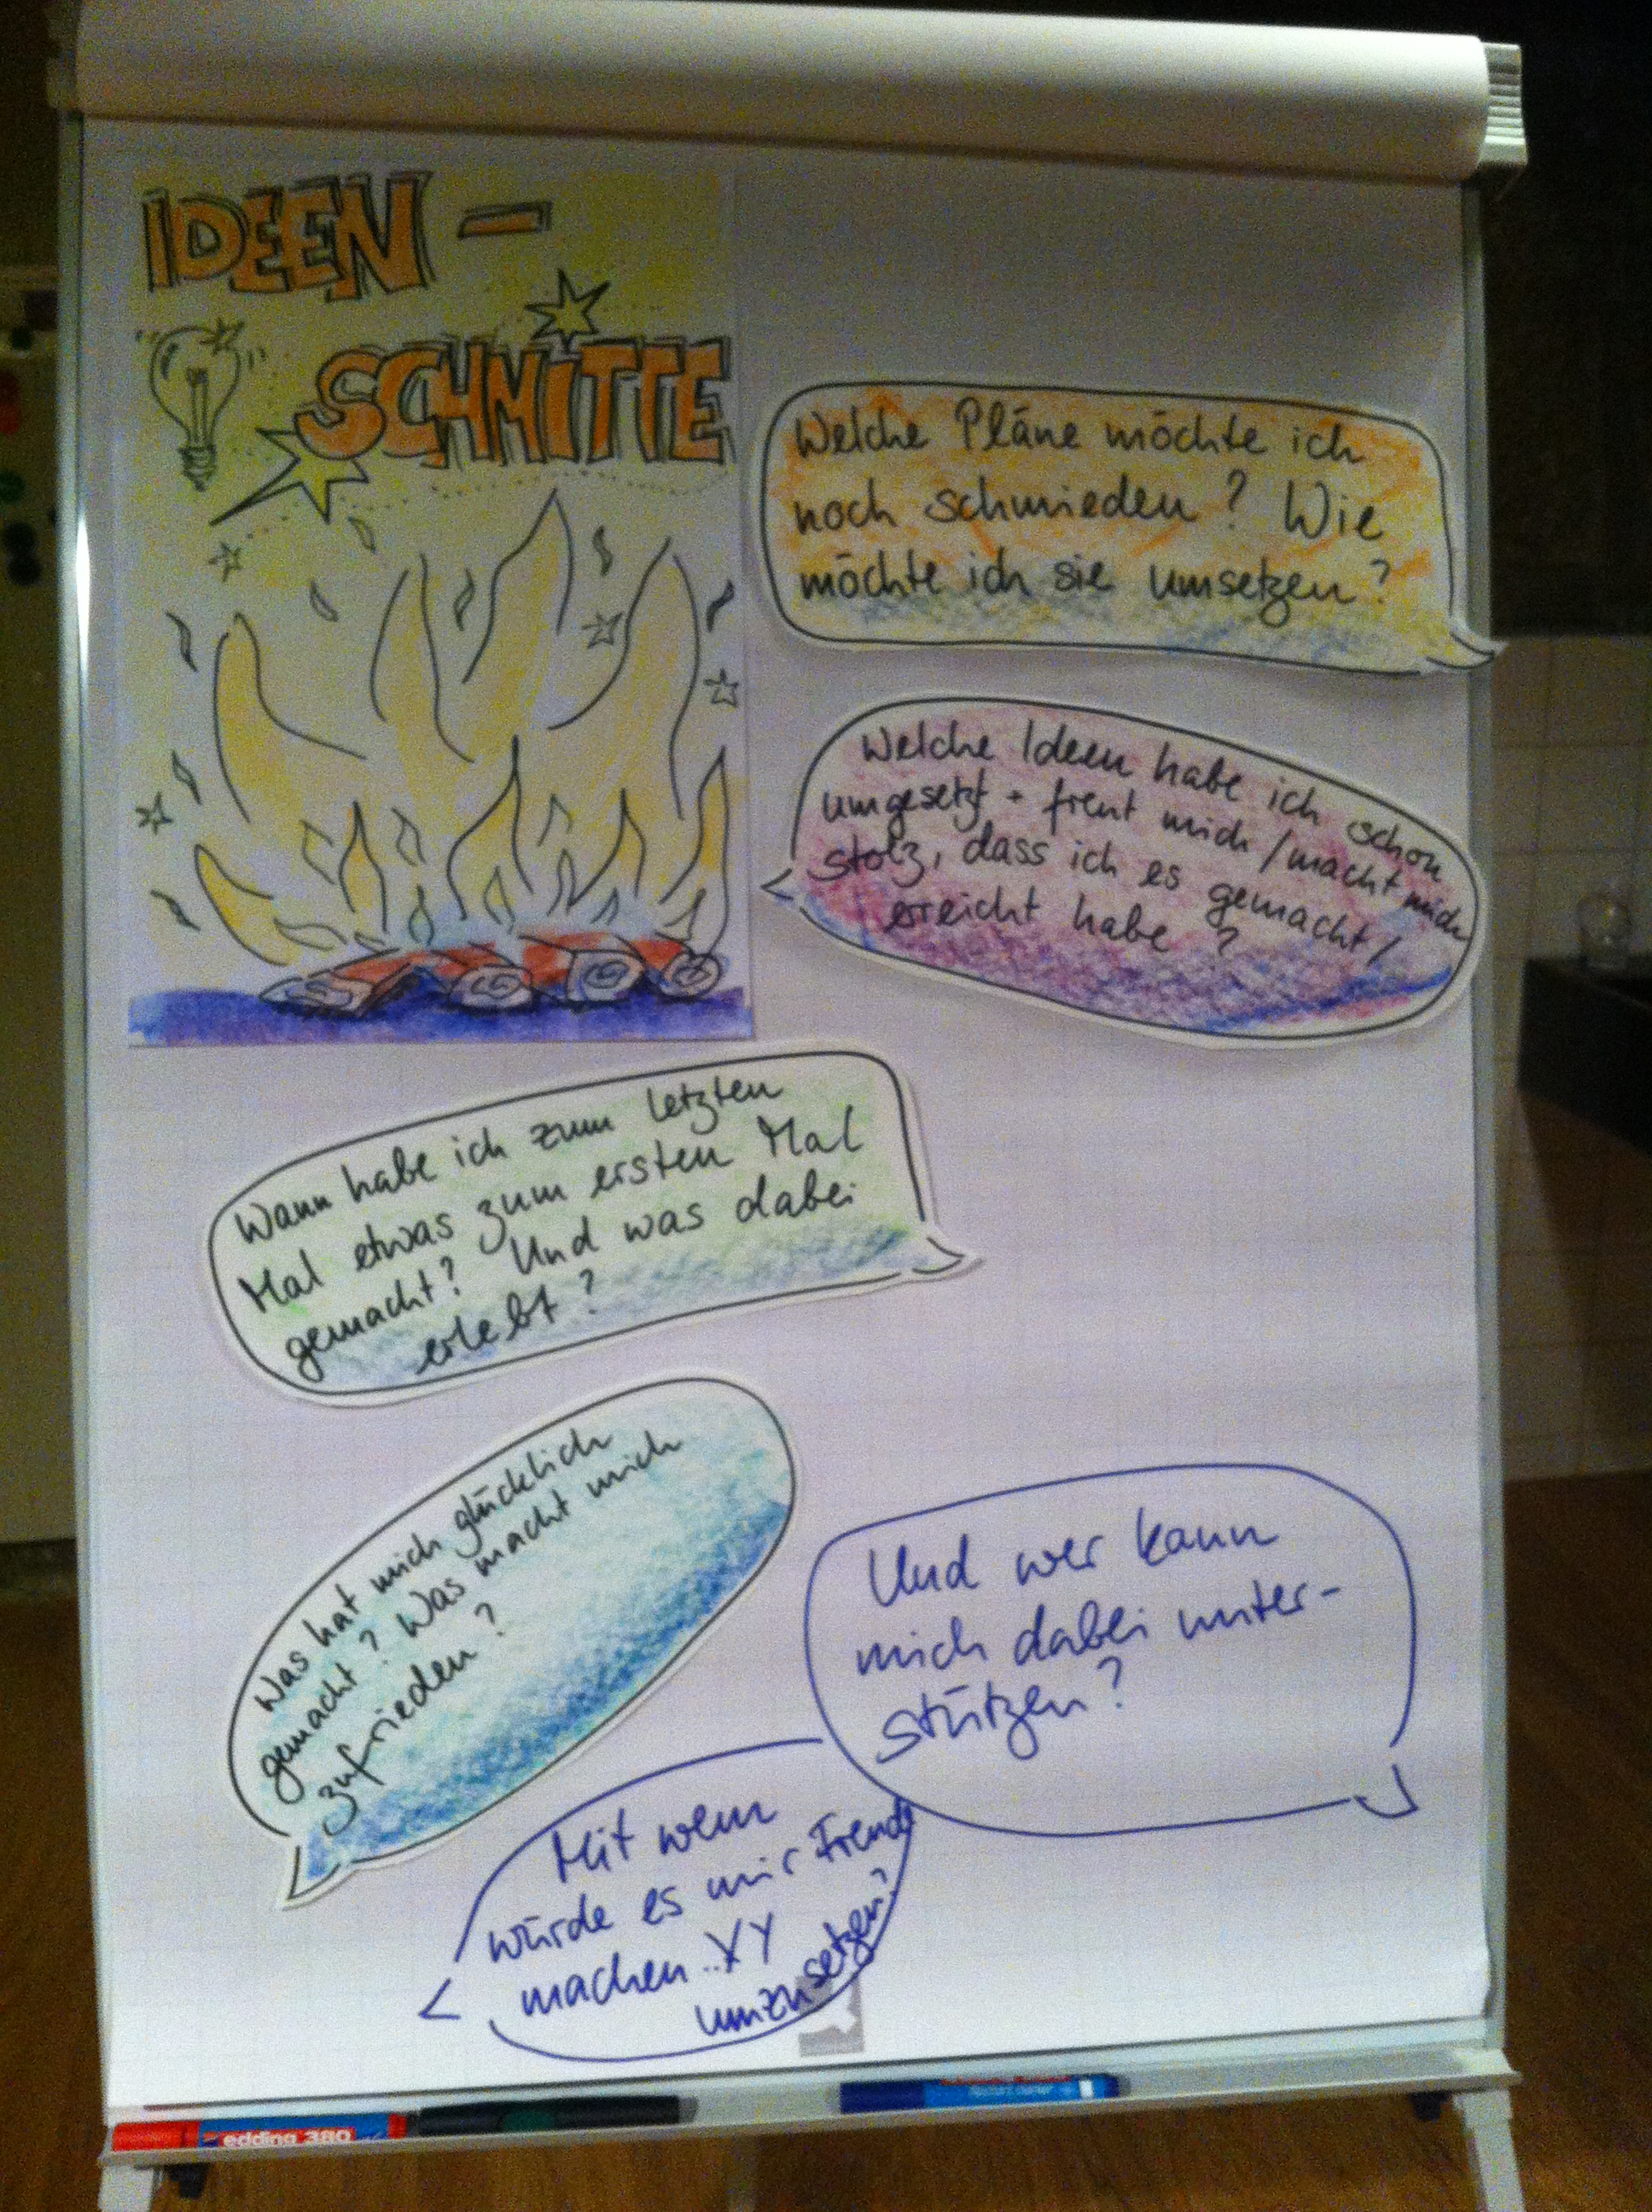 IDEEN -
SCHMITTE
Welche Pläne möchte ich
noch schmieden? Wie
möchte ich sie umsetzen?
Welche Ideen habe ich schon
umgesetzt + freut mich / macht mich
stolz, dass ich es gemacht /
erreicht habe?
Wann habe ich zum letzten
Mal etwas zum ersten Mal
gemacht? Und was dabei
erlebt?
Was hat mich glücklich
gemacht? Was macht mich
zufrieden?
Und wer kann
mich dabei unter-
stützen?
Mit wem
würde es mir Freude
machen .. XY
umzusetzen?
edding 380